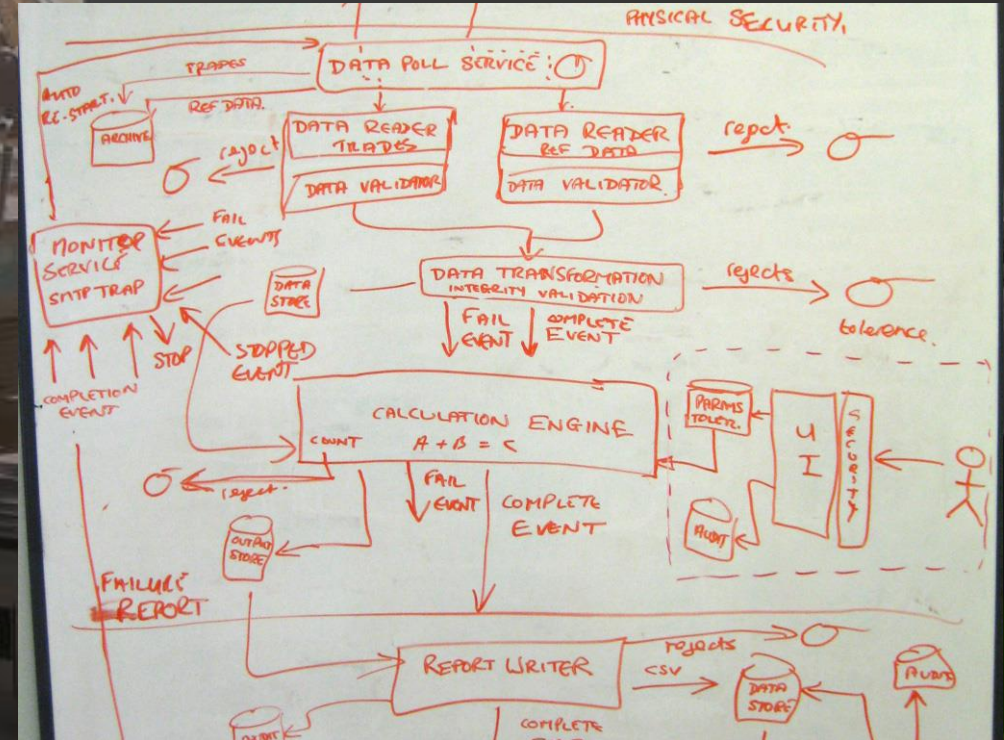 PHYSICAL SECURITY.
DATA POLL SERVICE
TRADES
AUTO
RE-START.
REF DATA.
ARCHIVE
DATA READER
TRADES
DATA VALIDATOR
DATA READER
REF DATA
DATA VALIDATOR
reject
reject.
FAIL
EVENTS
MONITOR
SERVICE
SMTP TRAP
DATA
STORE
DATA TRANSFORMATION
INTEGRITY VALIDATION
rejects
tolerence.
FAIL
EVENT
COMPLETE
EVENT
STOP
STOPPED
EVENT
COMPLETION
EVENT
CALCULATION ENGINE
COUNT
A + B = C
PARAMS
TOLER.
UI
SECURITY
AUDIT
reject.
FAIL
EVENT
COMPLETE
EVENT
OUTPUT
STORE
FAILURE
REPORT
REPORT WRITER
rejects
CSV
DATA
STORE
AUDIT
COMPLETE